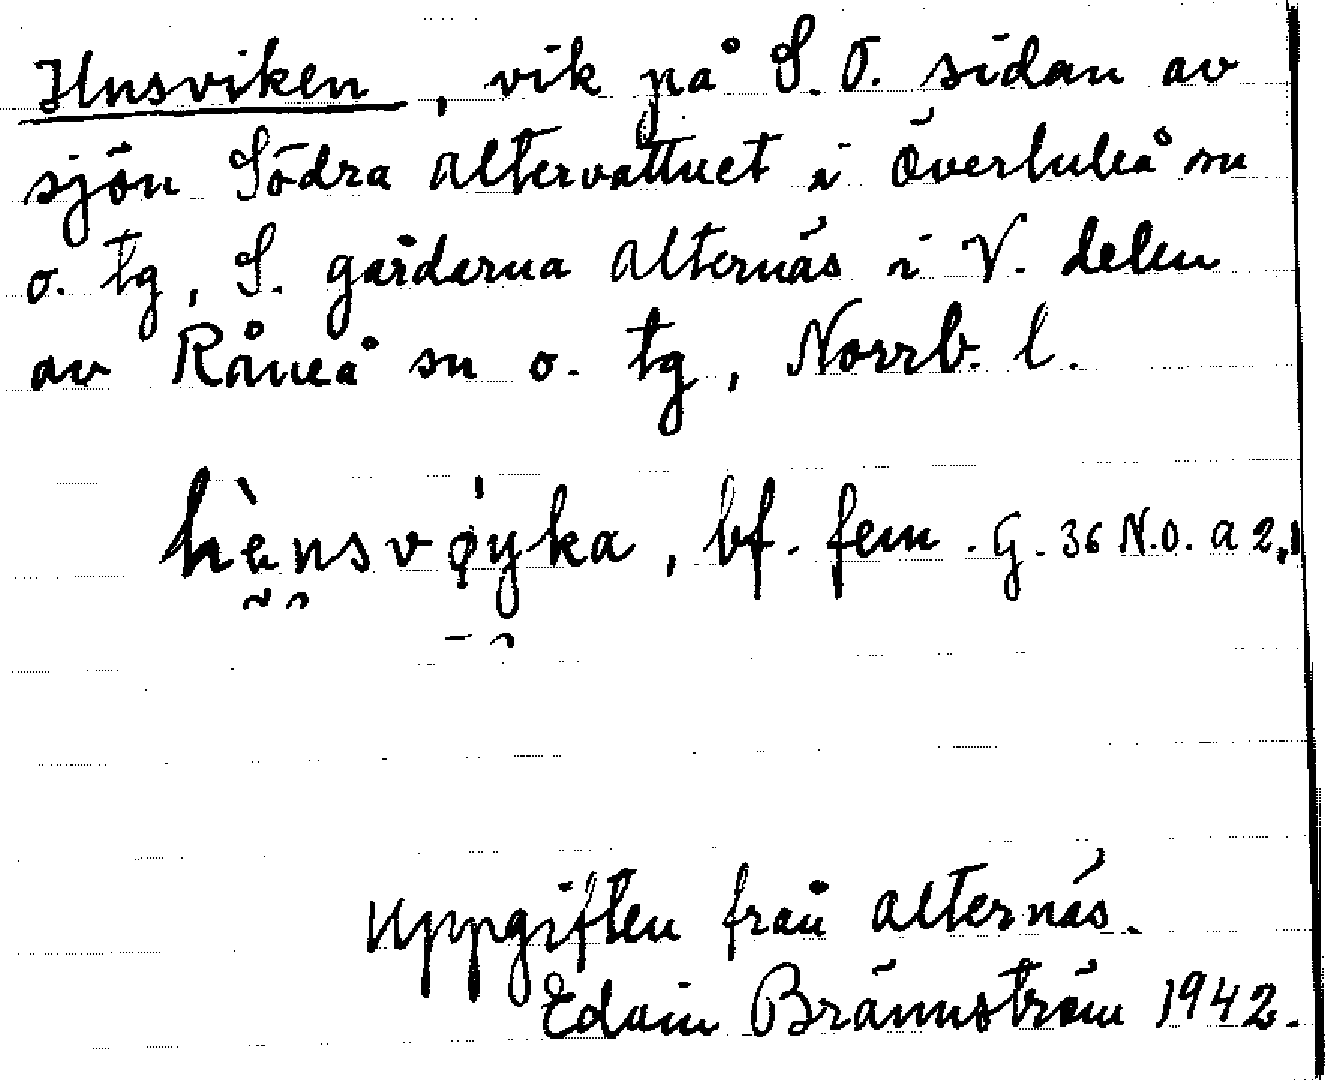 Hnsviken, vik på S.O. sidan av
sjön Södra Altervattnet i Överluleå sn
o. tg, S. gårdarna Alternäs i V. delen
av Råneå sn o. tg, Norrb. l.
hènsvǿyka, bf. fem. G. 36 N.O. a 2,1
Uppgiften från Alternäs.
Edvin Brännström 1942.